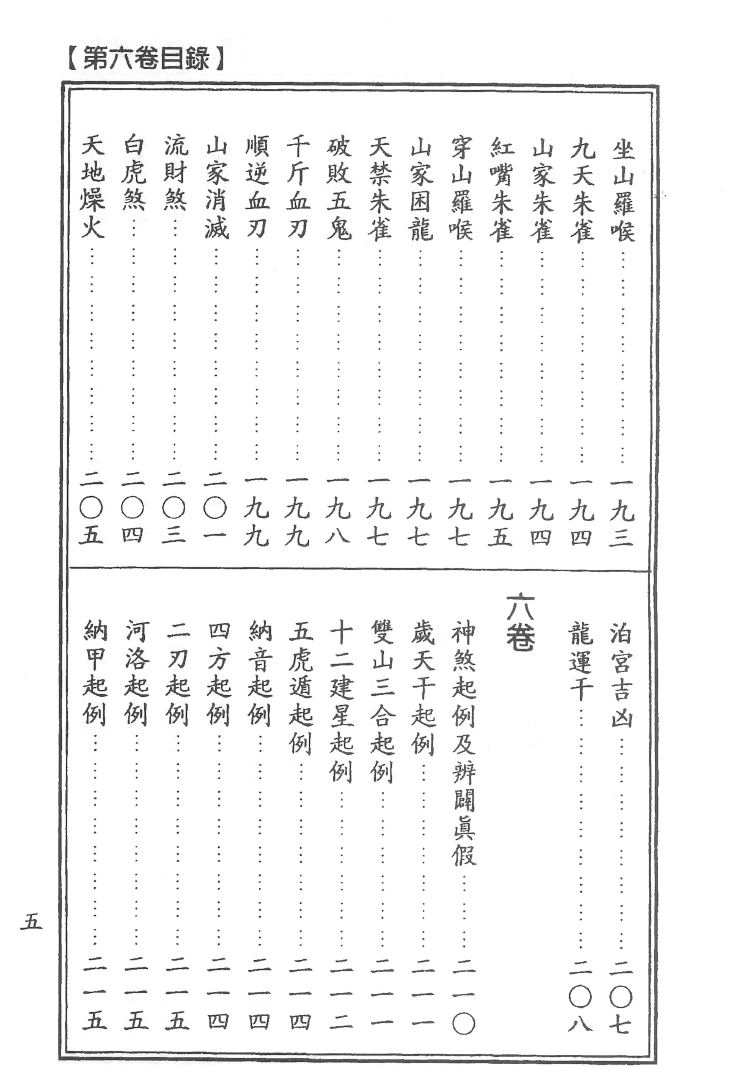 【第六卷目錄】
坐山羅睺……一九三
九天朱雀……一九四
山家朱雀……一九四
紅嘴朱雀……一九五
穿山羅睺……一九七
山家困龍……一九七
天禁朱雀……一九七
破敗五鬼……一九八
千斤血刃……一九九
順逆血刃……一九九
山家消滅……二〇一
流財煞……二〇三
白虎煞……二〇四
天地燥火……二〇五
泊宮吉凶……二〇七
龍運干……二〇八
六卷
神煞起例及辨闢眞假……二一〇
歲天干起例……二一一
雙山三合起例……二一一
十二建星起例……二一二
五虎遁起例……二一四
納音起例……二一四
四方起例……二一四
二刃起例……二一五
河洛起例……二一五
納甲起例……二一五
五